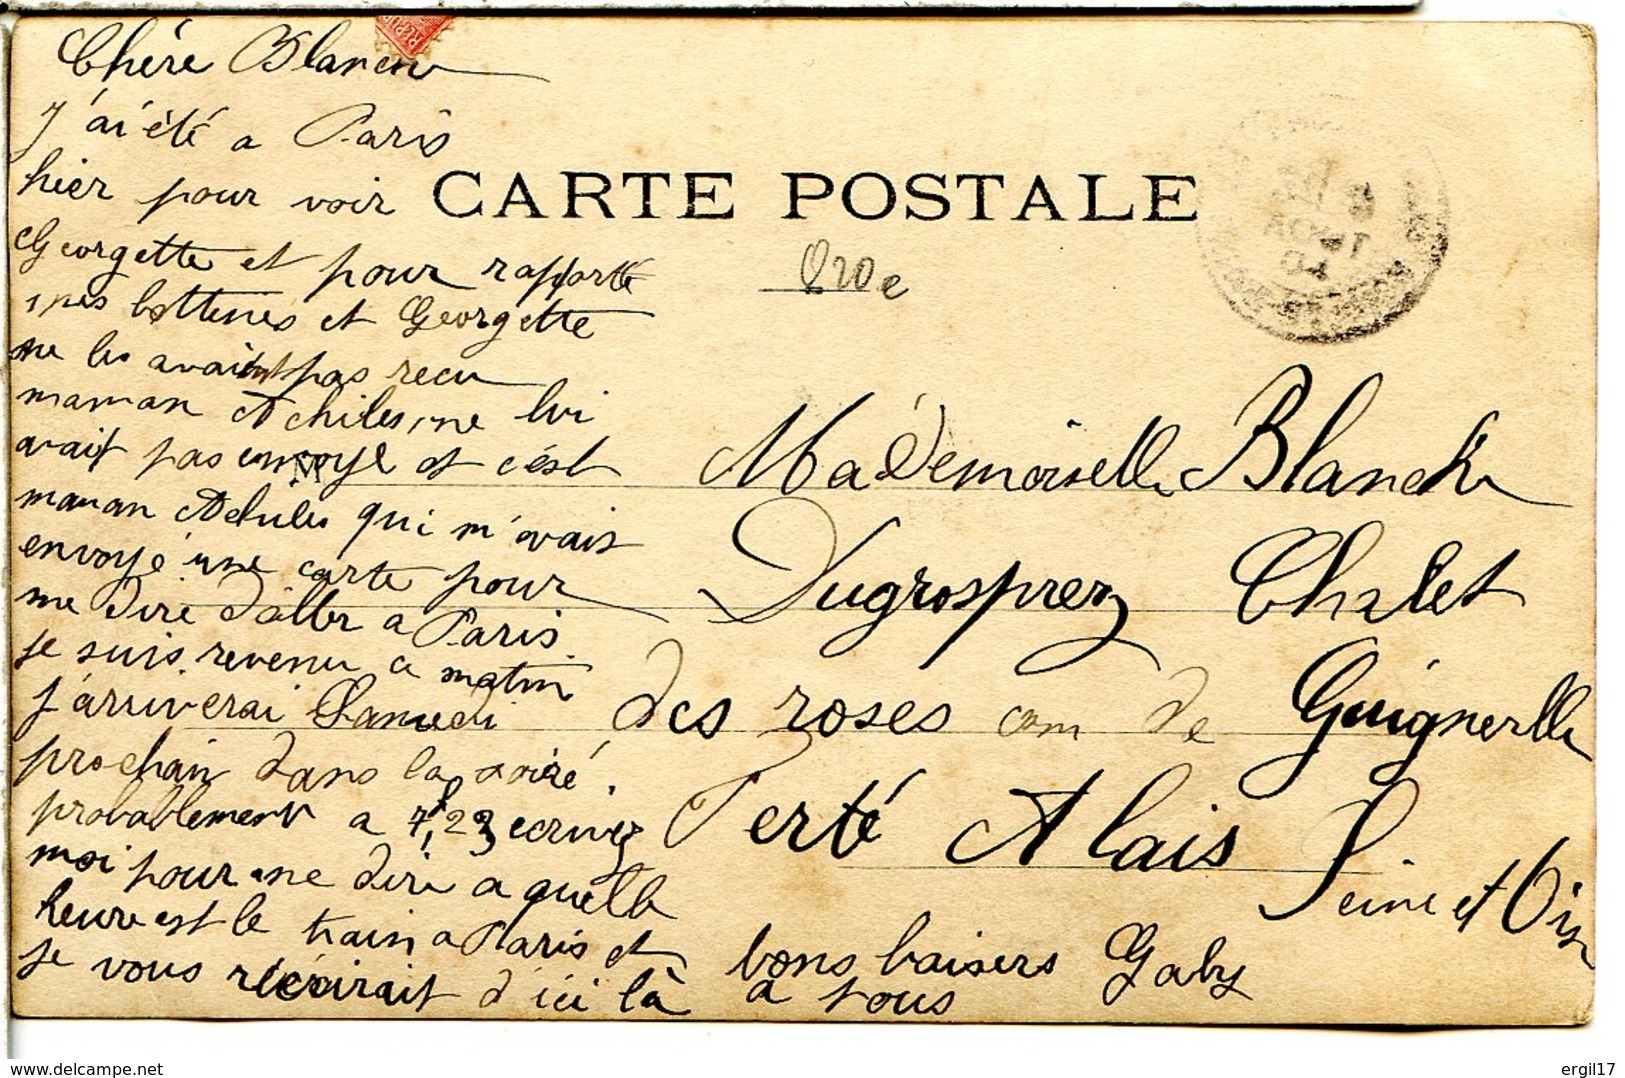 Chére Blanche
J'ai été a Paris
hier pour voir
CARTE POSTALE
Georgette et pour rapporté
mes bottines et Georgette
ne les avaient pas recu
maman Achiles, ne lui
avait pas envoyé et c'est
maman Achiles qui m'avait
envoyé une carte pour
me dire d'aller a Paris.
je suis revenu a matin
j'arriverai Samedi
prochain dans la soiré.
probablement a 7,23 ecrivez
moi pour me dire a quelle
heure est le train a Paris et
je vous récrirait d'ici là
bons baisers Gaby
a tous
Mademoiselle Blanche
Dugrosprez Chalet
des roses com de Guignerelle
Ferté Alais
Seine et Oise
AOUT
04
REPUB
www.delcampe.net
ergil17